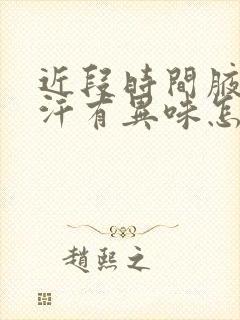 近段時間腋
汗有異味怎
趙熙之